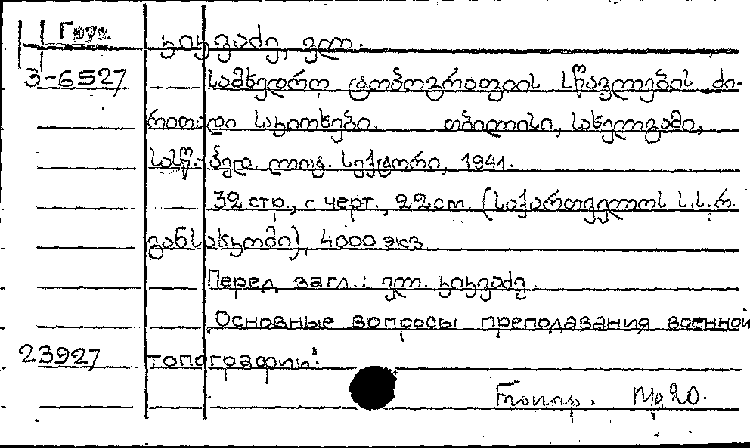 Груз.
კიკვაძე, ვლ.
3-6527
სამხედრო ტოპოგრაფიის სწავლების ძი-
რითადი საკითხები. თბილისი, სახელგამი,
სასწ.-პედ. ლიტ. სექტორი, 1941.
32 стр., с черт., 22 cm. (საქართველოს ს.ს.რ.
განსახკომი), 4000 экз.
Перед загл.: ვლ. კიკვაძე.
Основные вопросы преподавания военной
23927 топографии.
Топогр.